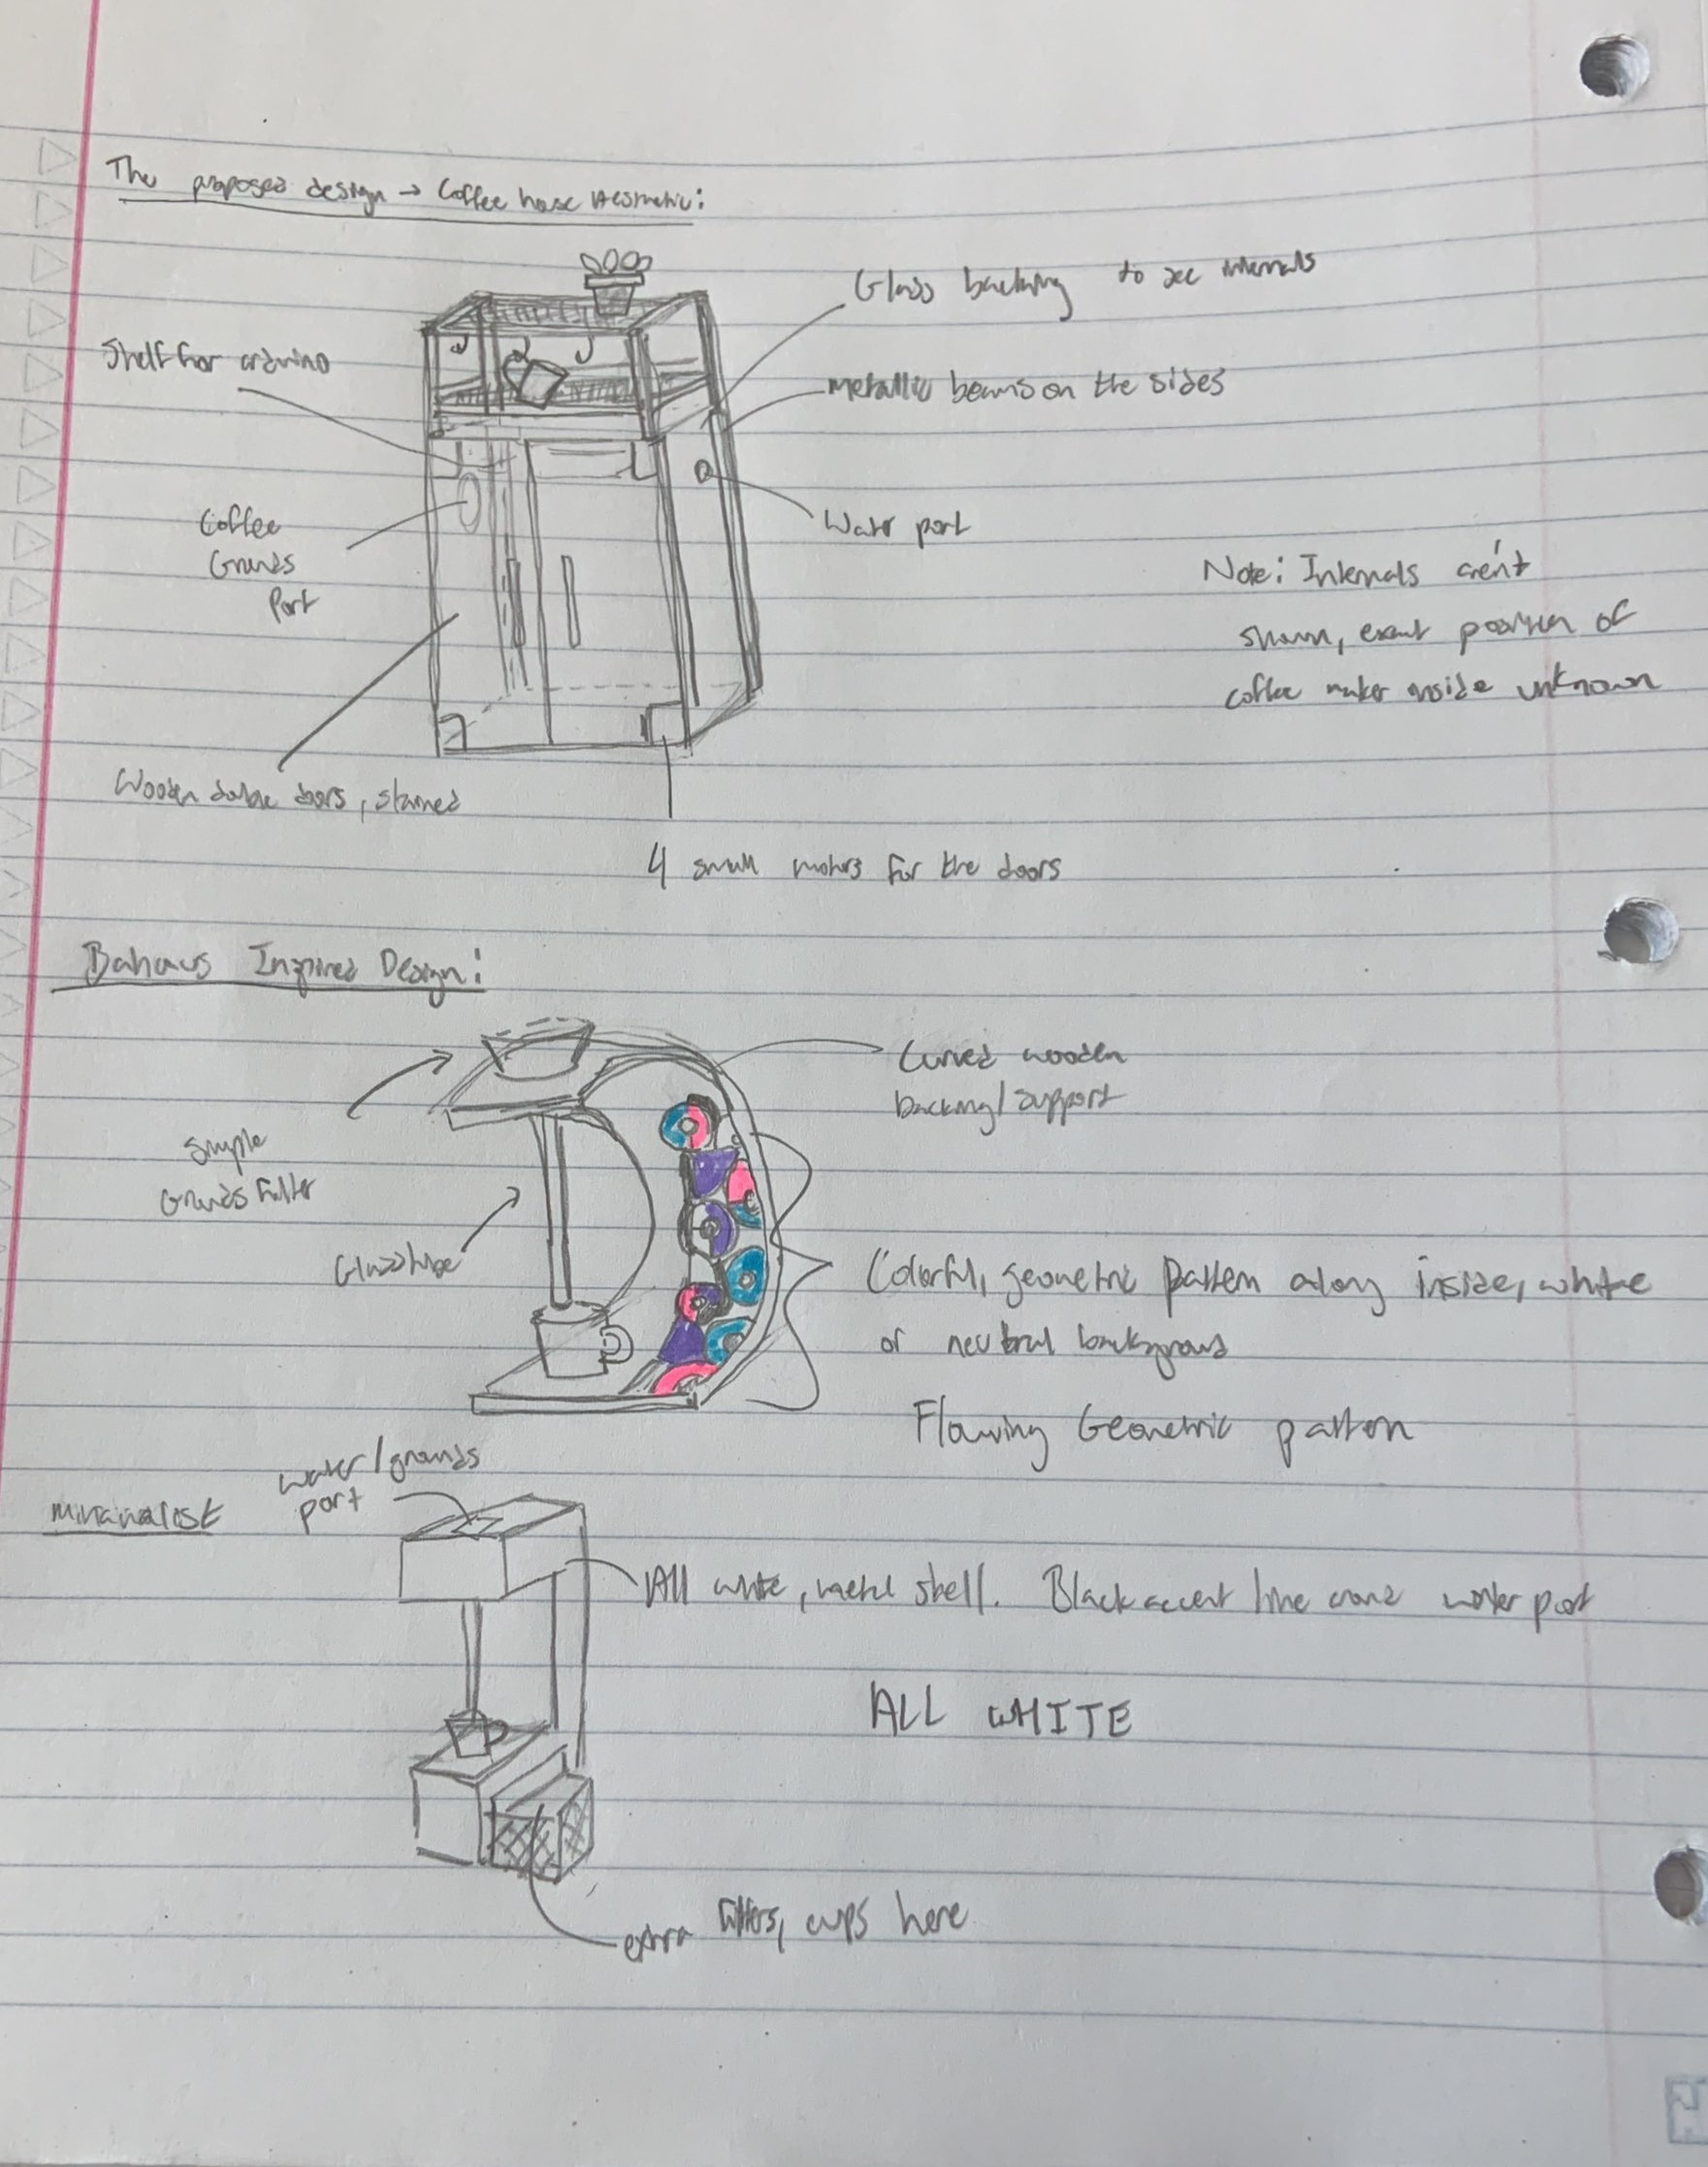 The proposed design → Coffee house Aesthetic:
Glass backing to see internals
Shelf for arduino
Metallic beams on the sides
Coffee
Grounds
Port
Water port
Note: Internals aren't
shown, exact position of
coffee maker inside unknown
Wooden double doors, stained
4 small motors for the doors
Bahaus Inspired Design:
Curved wooden
backing/support
Simple
Grounds Filter
Glass tube
Colorful, geometric pattern along inside, white
or neutral background
Flowing Geometric pattern
water/grounds
port
Minamalist
All white, metal shell. Black accent line around water port
ALL WHITE
extra filters, cups here